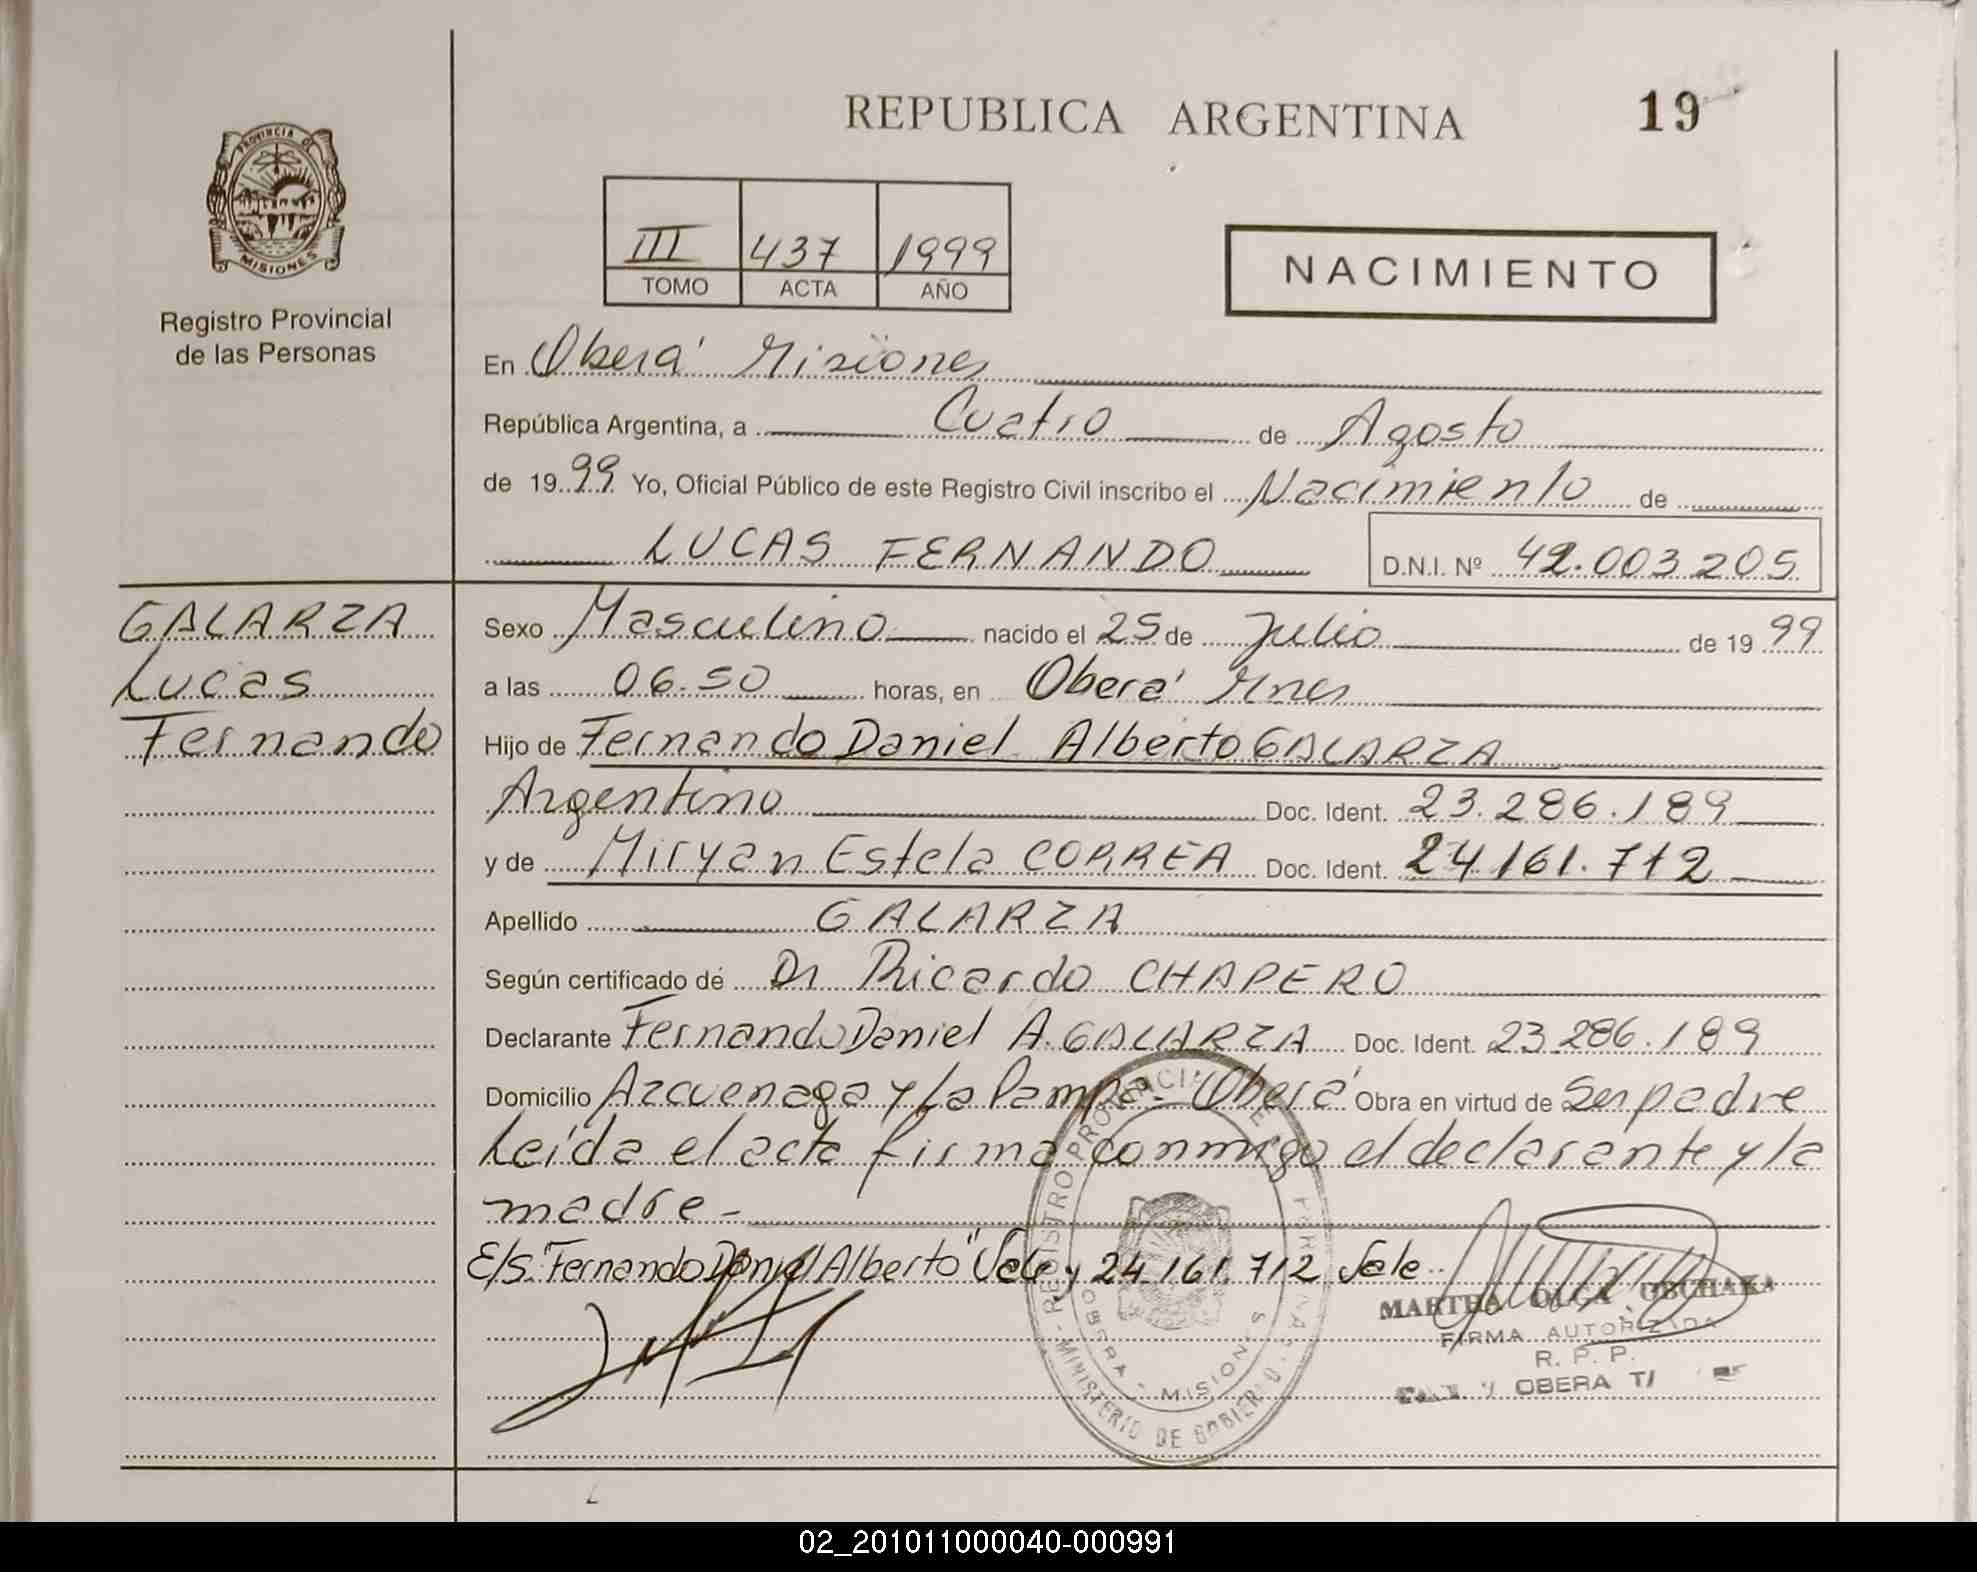 REPUBLICA ARGENTINA
19
PROVINCIA DE
MISIONES
Registro Provincial
de las Personas
III 437 1999
TOMO ACTA AÑO
NACIMIENTO
En Oberá Misiones
República Argentina, a Cuatro de Agosto
de 1999 Yo, Oficial Público de este Registro Civil inscribo el Nacimiento de
LUCAS FERNANDO D.N.I. Nº 42.003.205
GALARZA
Lucas
Fernando
Sexo Masculino nacido el 25 de Julio de 1999
a las 06.50 horas, en Oberá Mnes
Hijo de Fernando Daniel Alberto GALARZA
Argentino Doc. Ident. 23.286.189
y de Miryan Estela CORREA Doc. Ident. 24161.712
Apellido GALARZA
Según certificado de Dr Ricardo CHAPERO
Declarante Fernando Daniel A. GALARZA Doc. Ident. 23.286.189
Domicilio Azcuenaga y La Pampa - Oberá Obra en virtud de Ser padre
Leída el acta firma conmigo el declarante y la
madre -
E/S. "Fernando Daniel Alberto" Vale y 24.161.712 Vale
REGISTRO PROVINCIAL DE
MINISTERIO DE GOBIERNO
OBERA - MISIONES
MARTHA OLGA OBUHAKA
FIRMA AUTORIZADA
R. P. P.
OBERA
02_201011000040-000991